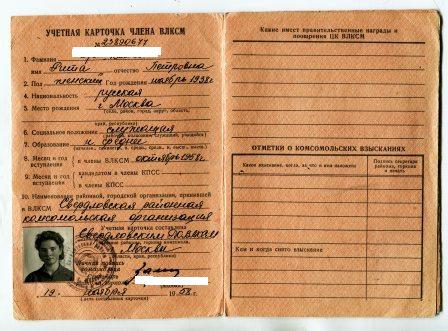 УЧЕТНАЯ КАРТОЧКА ЧЛЕНА ВЛКСМ
№ 23890677
1. Фамилия
имя Рита отчество Петровна
2. Пол женский Год рождения ноябрь 1938 г.
4. Национальность русская
5. Место рождения г. Москва
(село, район, город, округ, область,
край, республика)
6. Социальное положение служащая
7. Образование н/среднее
8. Месяц и год вступления в члены ВЛКСМ октябрь 1958 г.
9. Месяц и год вступления кандидатом в члены КПСС
в члены КПСС
10. Наименование районной, городской организации, принявшей
в ВЛКСМ Свердловская районная
комсомольская организация
Учетная карточка составлена
Свердловским РК ВЛКСМ
Москвы
Личная подпись
19 ноября 1958 г.
(дата составления карточки)
Какие имеет правительственные награды и
поощрения ЦК ВЛКСМ
ОТМЕТКИ О КОМСОМОЛЬСКИХ ВЗЫСКАНИЯХ
Какое взыскание, когда, за что и кем наложено
Подпись секретаря
райкома, горкома
и печать
Кем и когда снято взыскание